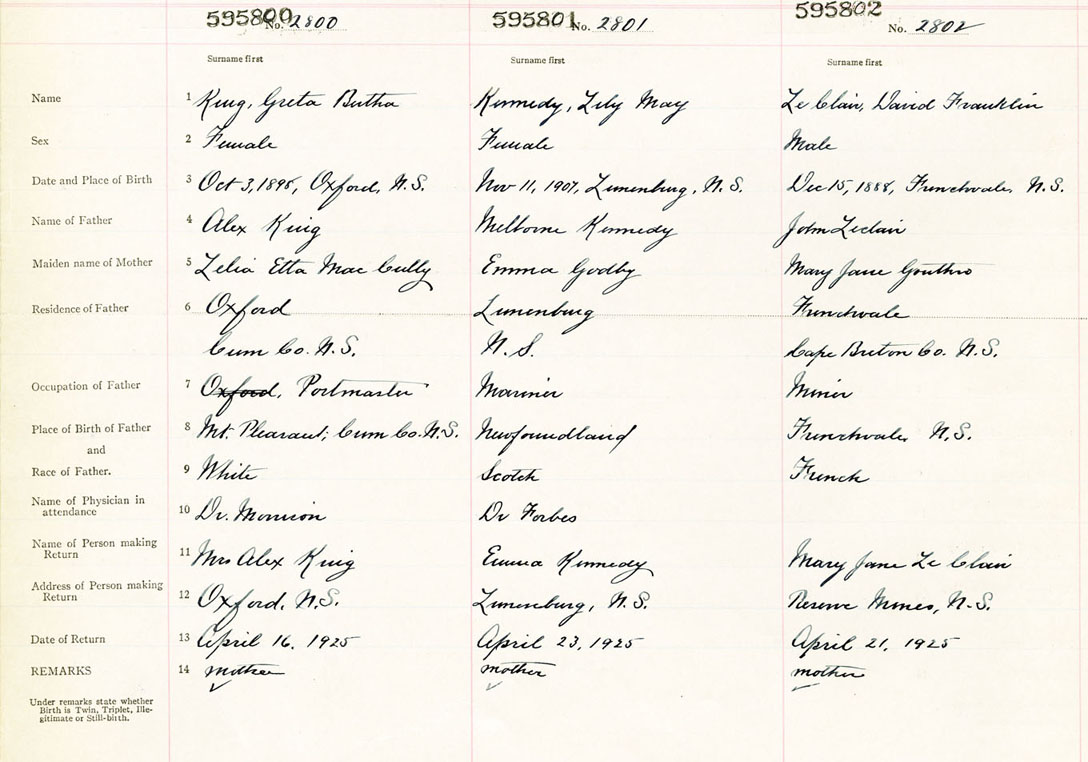 595800 No. 2800 595801 No. 2801 595802 No. 2802
Surname first Surname first Surname first
Name 1 King, Greta Bertha Kennedy, Lily May Le Clair, David Franklin
Sex 2 Female Female Male
Date and Place of Birth 3 Oct 3, Oxford, N.S. Nov 11, 1907, Lunenburg, N.S. Dec 15, 1888, Frenchvale, N.S.
Name of Father 4 Alex King Melborne Kennedy John Leclair
Maiden name of Mother 5 Zelia Etta MacCully Emma Godby Mary Jane Gouthro
Residence of Father 6 Oxford Lunenburg Frenchvale
Cum Co. N.S. N.S. Cape Breton Co. N.S.
Occupation of Father 7 Oxford, Postmaster Mariner Miner
Place of Birth of Father 8 Mt. Pleasant, Cum Co. N.S. Newfoundland Frenchvale, N.S.
and
Race of Father. 9 White Scotch French
Name of Physician in
attendance 10 Dr. Morrison Dr Forbes
Name of Person making
Return 11 Mrs Alex King Emma Kennedy Mary Jane Le Clair
Address of Person making
Return 12 Oxford, N.S. Lunenburg, N.S. Reserve Mines, N.S.
Date of Return 13 April 16, 1925 April 23, 1925 April 21, 1925
REMARKS 14 mother mother mother
Under remarks state whether
Birth is Twin, Triplet, Ille-
gitimate or Still-birth.